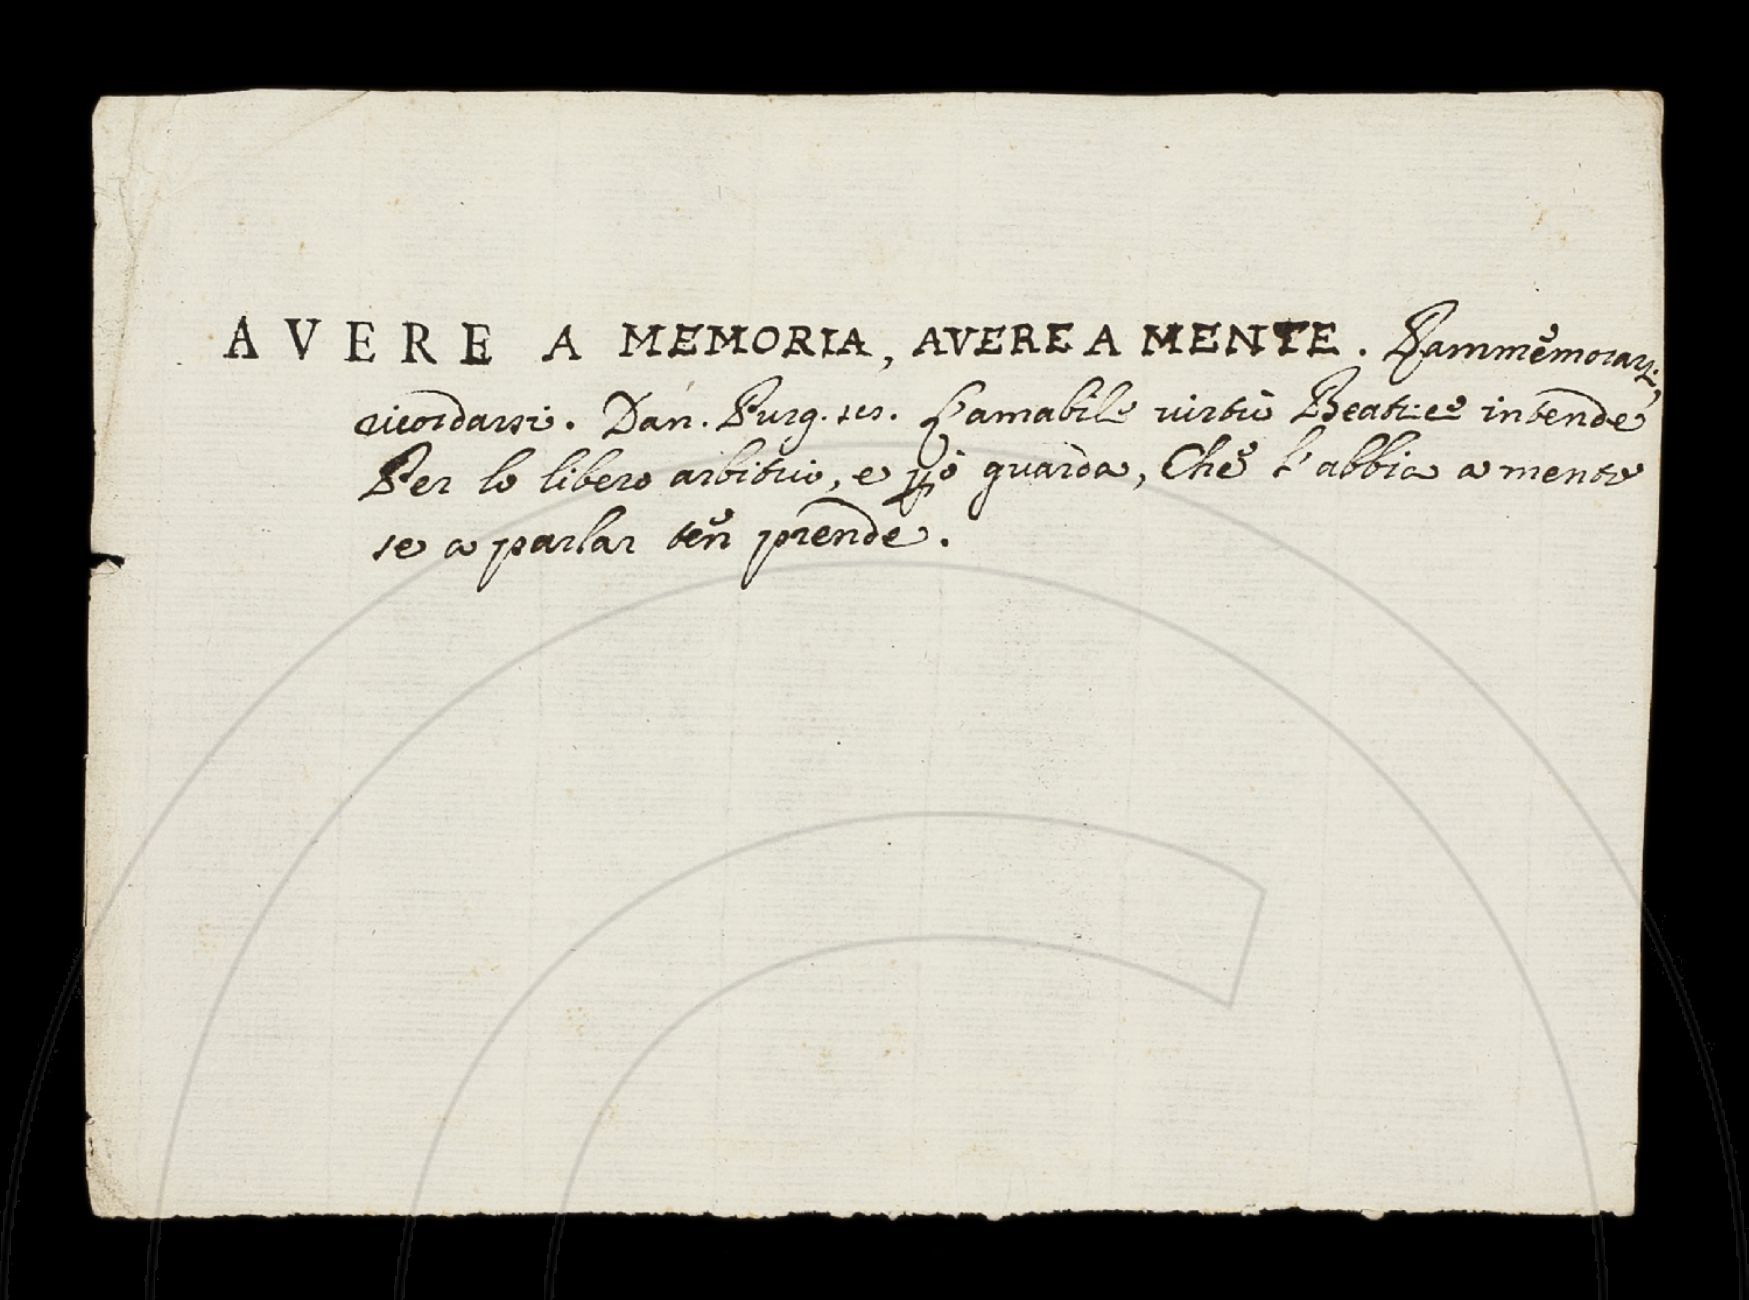 AVERE A MEMORIA, AVERE A MENTE. Rammemorarsi,
ricordarsi. Dan. Purg. L'amabile virtù Beatrice intende
Per lo libero arbitrio, e però guarda, Che l'abbia a mente
se a parlar ten prende.